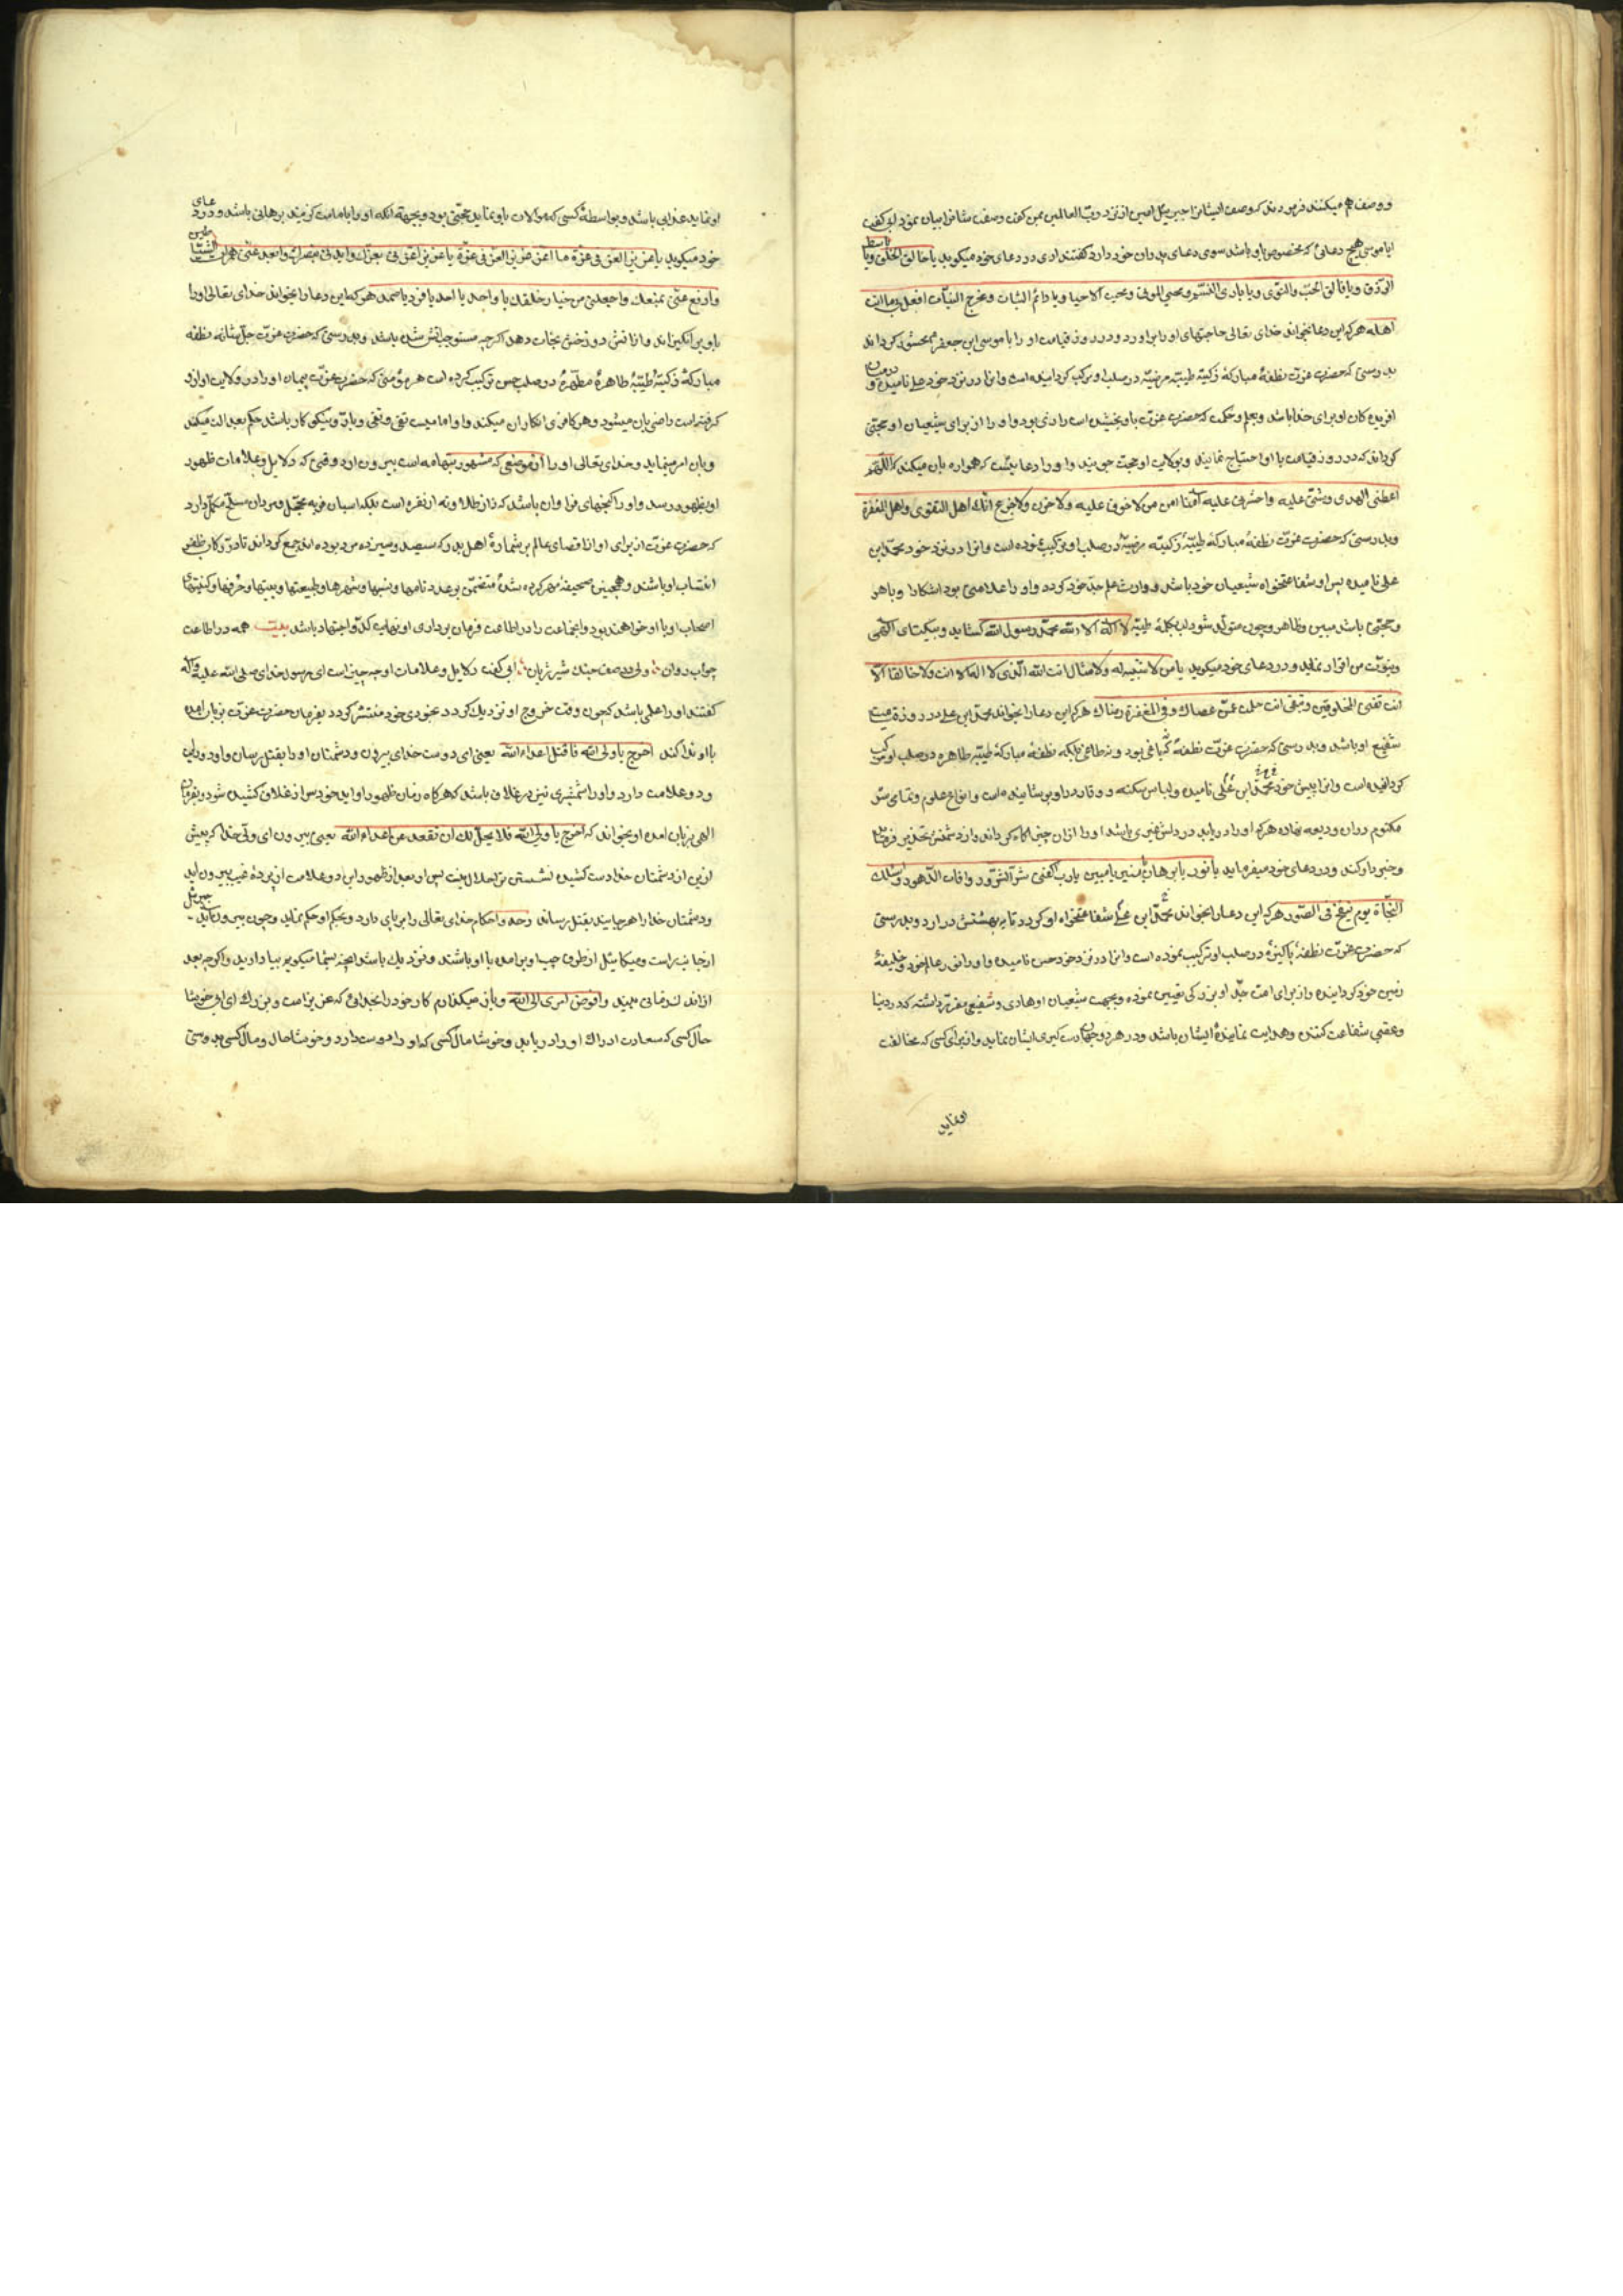 و وصف هم میکنند فرمودند که وصف ایشانرا جبرئیل امین از نزد رب العالمین بمن گفت وصفت شانرا بیان نمود ابی گفت
ایا موسی هیچ دعائی که مخصوص باو باشد سوی دعای پدران خود دارد گفتند اری در دعای خود میکوید یا خالق الخلق ویا باسط
الرزق ویا فالق الحب والنوی ویا باری النسم ومحیی الموتی وممیت الاحیا ویا دائم الثبات ومخرج النبات افعل بی ما انت
اهله هرکه این دعا بخواند خدای تعالی حاجتهای او را براورد ودر روز قیامت او را با موسی ابن جعفر محشور کرداند
بدرستی که حضرت عزت نطفهٔ مبارکهٔ زکیه طیبه مرضیه در صلب او مرکب کردانیده است وانرا در نزد خود علی نامیده و
افریده کان او برای خدا باشد وبعلم وحکمت که حضرت عزت باو بخشیده است راضی بود واو را از برای شیعیان او حجتی
کرداند که در روز قیامت با او احتیاج نمایند وبولایت او حجت جویند واو را دعائیست که همواره بان میکند که اللهم
اعطنی الهدی وثبتنی علیه واحشرنی علیه آمنا امن من لا خوف علیه ولا حزن ولا جزع انک اهل التقوی واهل المغفرة
وبدرستی که حضرت عزت نطفهٔ مبارکهٔ طیبهٔ زکیه مرضیه در صلب او ترکیب نموده است وانرا در نزد خود محمد ابن
علی نامیده پس او شفاعتخواه شیعیان خود باشد ووارث علم جد خود کردد واو را علامتی بود اشکارا وباهر
وحجتی باشد مبین وظاهر وچون متولد شود لب بکلمهٔ طیبه لا اله الا الله محمد رسول الله کشاید وبیکتای الهی
ونبوت من اقرار نماید ودر دعای خود میکوید یا من لا شبیه له ولا مثال انت الله الذی لا اله الا انت ولا خالقا الا
انت تفنی المخلوقین وتبقی انت حلمت عمن عصاک وفی المغفرة رضاک هرکه این دعا را بخواند محمد ابن علی در روز قیامت
شفیع او باشد وبدرستی که حضرت عزت نطفهٔ که نه باغی بود ونه طاغی بلکه نطفهٔ مبارکهٔ طیبه طاهره در صلب او مرکب
کردانیده است وانرا پیش خود محمد ابن علی نامیده ولباس سکینه ووقار در او پوشانیده است وانواع علوم وتمامی سر
مکتوم در ان ودیعه نهاده هرکه او را دریابد در دلش خبری باشد او را ازان چیز اکاه کرداند واز دشمنش تحذیر فرماید
وخبردار کند ودر دعای خود میفرماید یا نور یا برهان یا منیر یا مبین یا رب اکفنی شر الشرور وافات الدهور واسئلک
النجاة یوم ینفخ فی الصور هرکه این دعا را بخواند محمد ابن علی شفاعتخواه او کردد تا به بهشتش دراورد وبدرستی
که حضرت عزت نطفهٔ پاکیزه در صلب او ترکیب نموده است وانرا در نزد خود حسن نامیده واو را نور عالم خود وخلیفهٔ
زمین خود کردانیده واز برای امت جد او بزرکی تعیین نموده وبجهت شیعیان او هادی وشفیعی مقرر داشته که در دنیا
وعقبی شفاعت کننده وهدایت نمایندهٔ ایشان باشد ودر هر دو جهان دستکیری ایشان نماید واز برای کسی که مخالفت
او نماید
او نماید عذابی باشد وبواسطهٔ کسی که موالات باو نماید حجتی بود وبجهة انکه او را بامامت کزیند برهانی باشد ودر دعای
خود میکوید یا عزیز العز فی عزه ما اعز عزیز العز فی عزه یا عزیز اعزنی بعزک وایدنی بنصرک وابعد عنی همزات الشیاطین
وادفع عنی بمنعک واجعلنی من خیار خلقک یا واحد یا احد یا فرد یا صمد هرکه این دعا را بخواند خدای تعالی او را
با وی برانکیزاند واز اتش دوزخش نجات دهد اکرچه مستوجب اتش شده باشد وبدرستی که حضرت عزت جل شانه نطفه
مبارکهٔ زکیهٔ طیبهٔ طاهرهٔ مطهره در صلب حسن ترکیب کرده است هر مؤمنی که حضرت عزت پیمان او را در ولایت او ازو
کرفته است راضی بان میشود وهر کافری انکار ان میکند واو امامیست تقی ونقی وبار ونیکوکار باشد حکم بعدالت میکند
وبان امر مینماید وخدای تعالی او را از موضعی که مشهور بتهامه است بیرون ارد وقتی که دلایل وعلامات ظهور
او بظهور رسد واو را کنجهای فراوان باشد که نه از طلا ونه از نقره است بلکه اسبان فربه محجل ومردان مسلح مکمل دارد
که حضرت عزت از برای او از اقصای عالم بر شمارهٔ اهل بدر که سیصد وسیزده مرد بوده اند جمع کرداند تا در رکاب ظفر
انتساب او باشند وهمچنین صحیفهٔ مهر کرده شده متضمن بر عدد نامها ونسبها وشهرها وطبیعتها وبیتها وحرفها وکنیتهای
اصحاب او با او خواهند بود واجماعت را در اطاعت فرمان برداری او نهایت کد واجتهاد باشد بیت همه در اطاعت
چو اب روان ولی در صف جنک شیر ژیان ابی گفت دلایل وعلامات او چه چیز است ای رسول خدای صلی الله علیه وآله
گفتند او را علمی باشد که چون وقت خروج او نزدیک کردد بخودی خود منتشر کردد بفرمان حضرت عزت بزبان امده
با او ندا کند اخرج یا ولی الله فاقتل اعداء الله یعنی ای دوست خدای بیرون و دشمنان او را بقتل رسان واو را ورایتی
ودو علامت دارد واو را شمشیری نیز در غلاف باشد که هرکاه زمان ظهور او اید خود بس از غلاف کشیده شود وبفرمان
الهی بزبان امده او بخواند که اخرج یا ولی الله فلا یحل لک ان تقعد عن اعداء الله یعنی بیرون ای ولی خدا که پیش
ازین از دشمنان خدا دست کشیده نشستن ترا حلال نیست پس او بعد از ظهور این دو علامت از پردهٔ غیب بیرون اید
ودشمنان خدا را هرجا بیند بقتل رساند وحد واحکام خدای تعالی را برپای دارد وبحکم او حکم نماید وچون بیرون اید جبرئیل
از جانب راست ومیکائیل از طرف چپ او برامده با او باشند ونزدیک باشد انچه بشما میکویم بیاد ارید واکرچه بعد
از اندک زمانی ببیند وافوض امری الی الله وباز میکذارم کار خود را بخدای که عزیز است وبزرک ای ابی خوشا
حال کسی که سعادت ادراک او را دریابد وخوشا حال کسی که او را دوست دارد وخوشا حال ومال کسی بدوستی